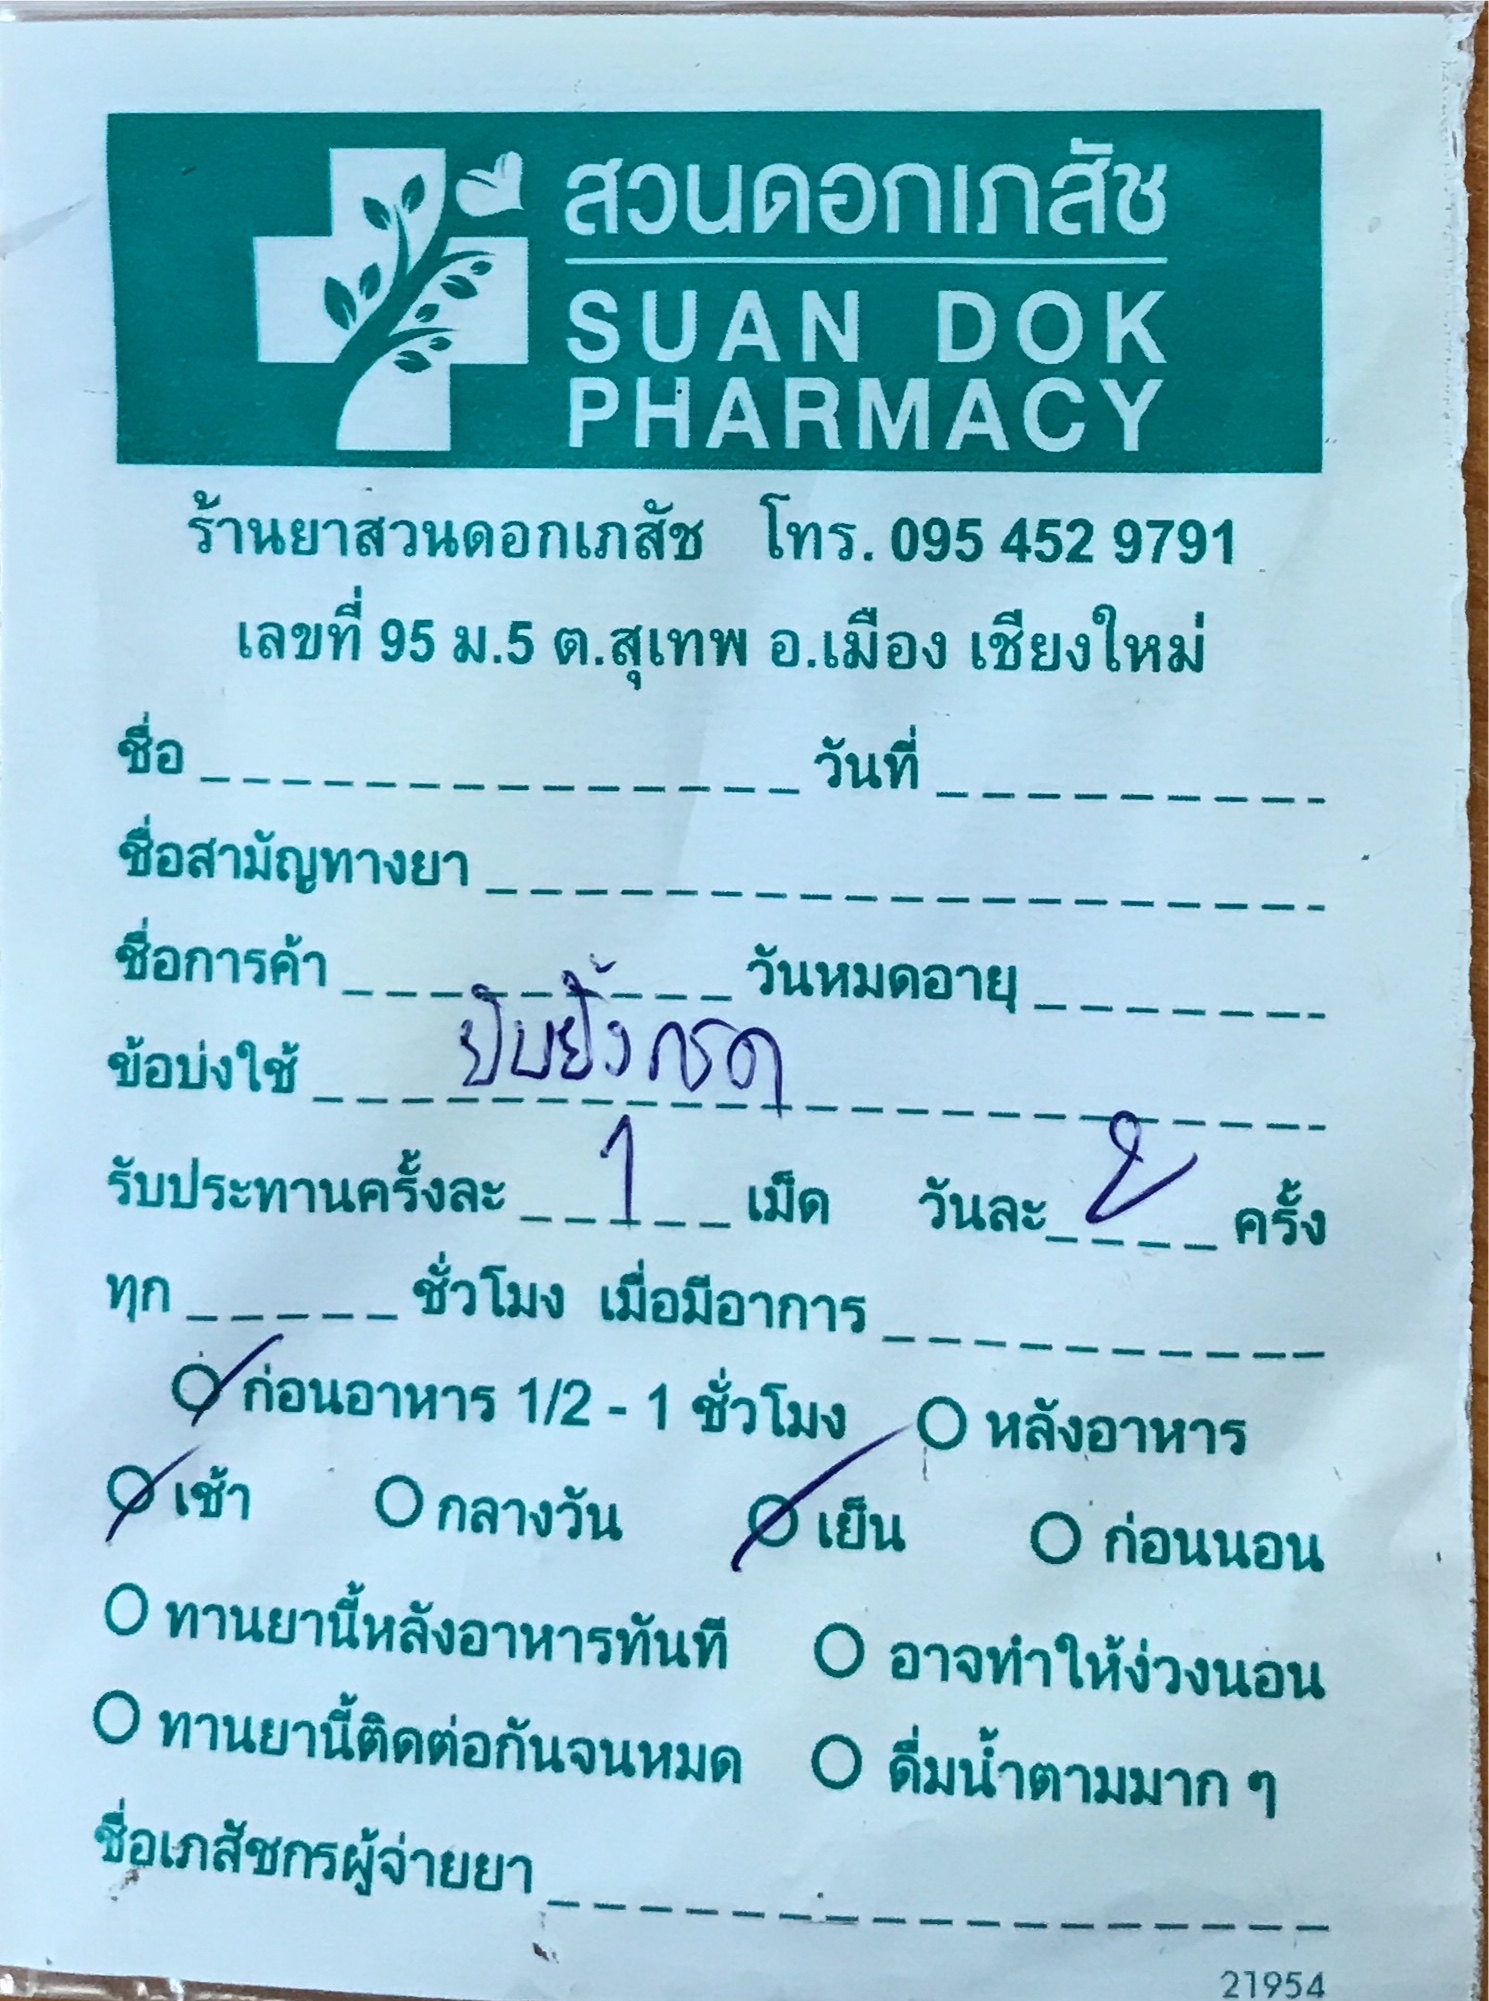 สวนดอกเภสัช
SUAN DOK
PHARMACY
ร้านยาสวนดอกเภสัช โทร. 095 452 9791
เลขที่ 95 ม.5 ต.สุเทพ อ.เมือง เชียงใหม่
ชื่อ วันที่
ชื่อสามัญทางยา
ชื่อการค้า วันหมดอายุ
ข้อบ่งใช้ ยับยั้งกรด
รับประทานครั้งละ 1 เม็ด วันละ 2 ครั้ง
ทุก ชั่วโมง เมื่อมีอาการ
ก่อนอาหาร 1/2 - 1 ชั่วโมง หลังอาหาร
เช้า กลางวัน เย็น ก่อนนอน
ทานยานี้หลังอาหารทันที อาจทำให้ง่วงนอน
ทานยานี้ติดต่อกันจนหมด ดื่มน้ำตามมาก ๆ
ชื่อเภสัชกรผู้จ่ายยา
21954